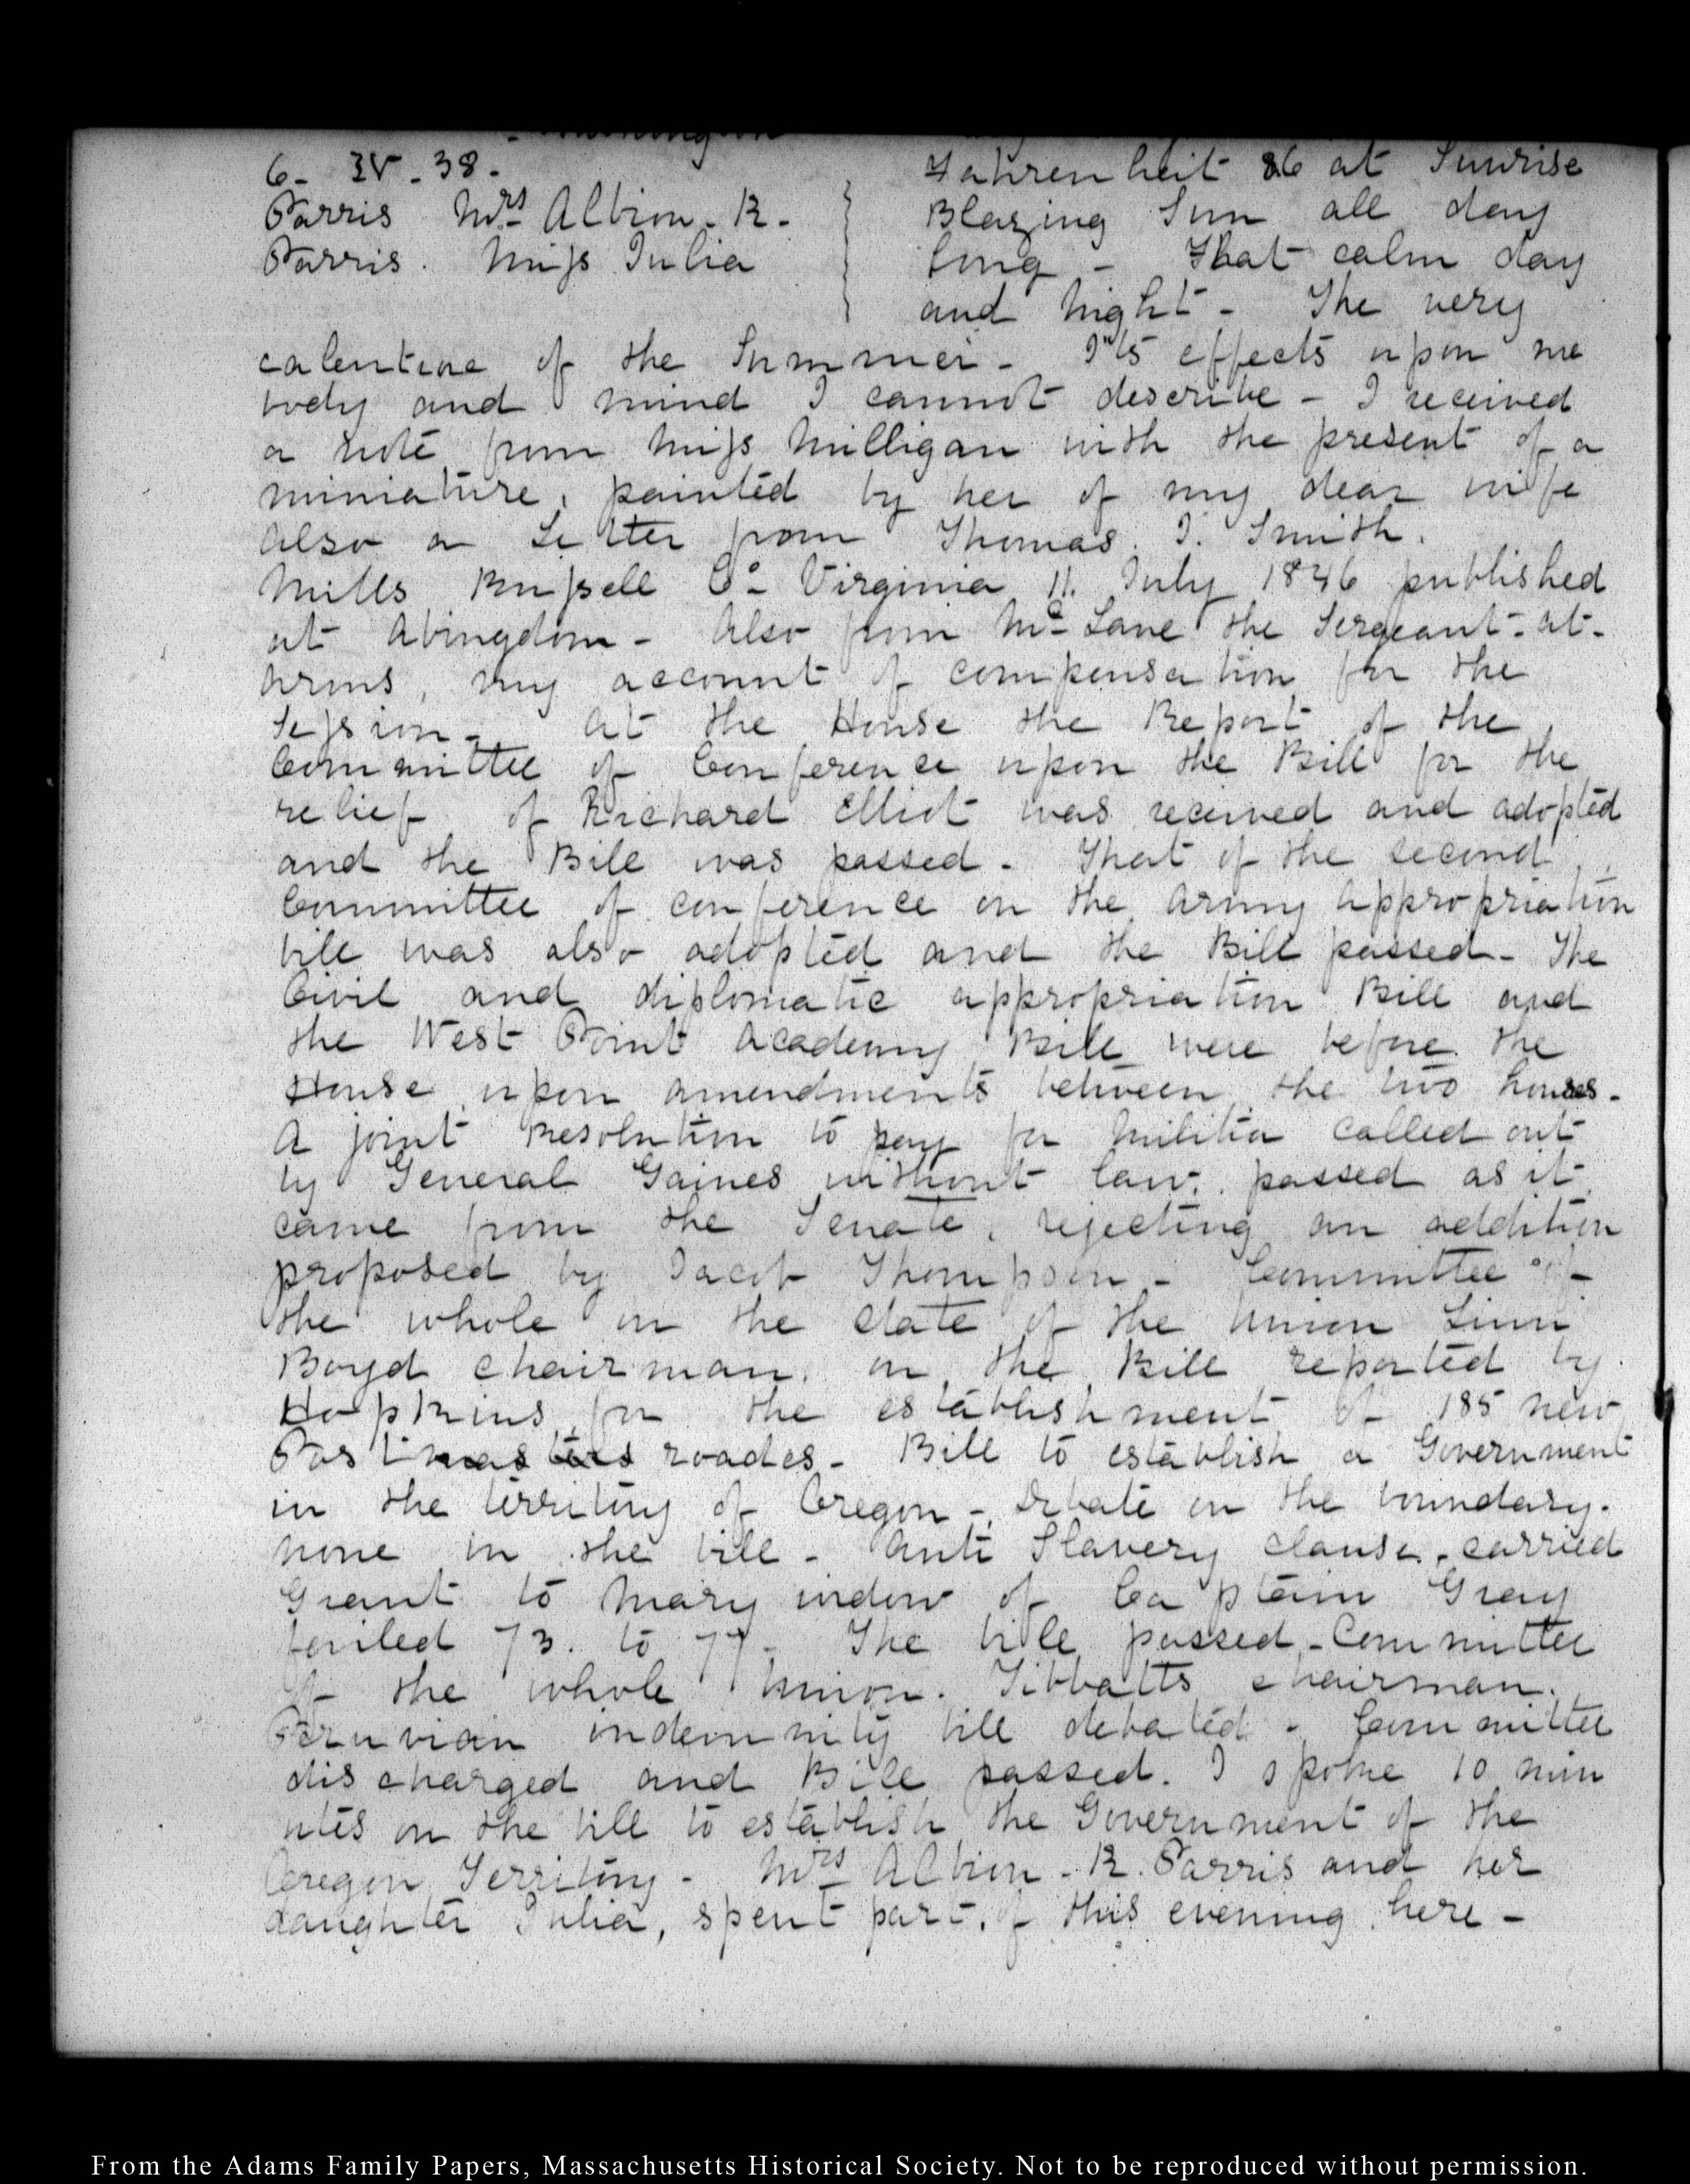 6- IV. 38.
Parris Mrs. Albion. K.
Parris. Miss Julia
Fahrenheit 86 at Sunrise
Blazing Sun all day
long - That calm day
and night - The very
calenture of the Summer - It's effects upon me
body and mind I cannot describe - I received
a note from Miss Milligan with the present of a
miniature, painted by her of my dear wife
also a Letter from Thomas. I. Smith.
Mills Russell Co. Virginia 11. July 1846 published
at Abingdon - Also from Mc Lane the Sergeant-at-
arms, my account of compensation for the
Session - At the House the Report of the
Committee of Conference upon the Bill for the
relief of Richard Elliot was received and adopted
and the Bill was passed - That of the second
Committee of conference on the Army appropriation
bill was also adopted and the Bill passed - The
Civil and diplomatic appropriation Bill and
the West Point Academy Bill were before the
House upon amendments between the two houses -
A joint Resolution to pay for Militia called out
by General Gaines without law, passed as it
came from the Senate, rejecting an addition
proposed by Jacob Thompson - Committee of -
the whole on the state of the Union Linn
Boyd chairman. on the Bill reported by
Hopkins for the establishment of 185 new
Post roades - Bill to establish a Government
in the territory of Oregon - debate on the boundary.
none in the bill - Anti Slavery clause - carried
Grant to Mary widow of Captain Gray
failed 73. to 77 - The bill passed - Committee
of the whole Union. Tibbatts chairman.
Peruvian indemnity bill debated - Committee
discharged and Bill passed. I spoke 10 min
utes on the bill to establish the Government of the
Oregon Territory - Mrs Albion - K. Parris and her
daughter Julia, spent part of this evening here -
From the Adams Family Papers, Massachusetts Historical Society. Not to be reproduced without permission.